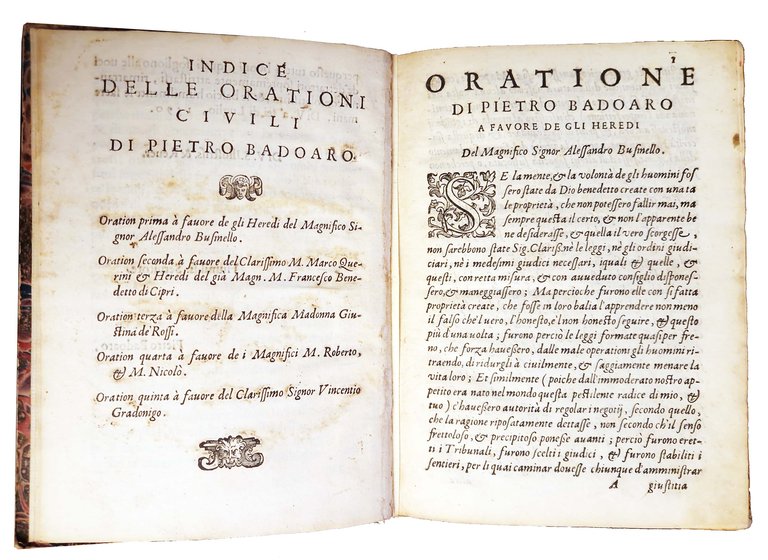 INDICE
DELLE ORATIONI
CIVILI
DI PIETRO BADOARO.
Oration prima à fauore de gli Heredi del Magnifico Si-
gnor Alessandro Businello.
Oration seconda à fauore del Clarissimo M. Marco Que-
rini & Heredi del già Magn. M. Francesco Bene-
detto di Cipri.
Oration terza à fauore della Magnifica Madonna Giu-
stina de' Rossi.
Oration quarta à fauore de i Magnifici M. Roberto,
& M. Nicolò.
Oration quinta à fauore del Clarissimo Signor Vincentio
Gradonigo.
1
ORATIONE
DI PIETRO BADOARO
A FAVORE DE GLI HEREDI
Del Magnifico Signor Alessandro Businello.
SE la mente, & la volontà de gli huomini fos
sero state da Dio benedetto create con una ta
le proprietà, che non potessero fallir mai, ma
sempre questa il certo, & non l'apparente be
ne desiderasse, & quella il vero scorgesse,
non sarebbono state Sig. Clariss. nè le leggi, nè gli ordini giudi-
ciari, nè i medesimi giudici necessari, iquali & quelle, &
questi, con retta misura, & con auueduto consiglio disponesse-
sero, & maneggiassero; Ma percioche furono elle con sì fatta
proprietà create, che fosse in loro balia l'apprendere non meno
il falso ch'el uero, l'honesto, e'l non honesto seguire, & questo
più d'una volta; furono perciò le leggi formate quasi per fre-
no, che forza hauessero, dalle male operationi gli huomini ri-
traendo, di ridurgli à ciuilmente, & saggiamente menare la
vita loro; Et similmente (poiche dall'immoderato nostro ap-
petito era nato nel mondo questa pestilente radice di mio, &
tuo) c'hauessero autorità di regolar i negotij, secondo quello,
che la ragione riposatamente dettasse, non secondo ch'il senso
frettoloso, & precipitoso ponesse auanti; perciò furono eret-
ti i Tribunali, furono scelti i giudici, & furono stabiliti i
sentieri, per li quai caminar douesse chiunque d'amministrar
A giustitia